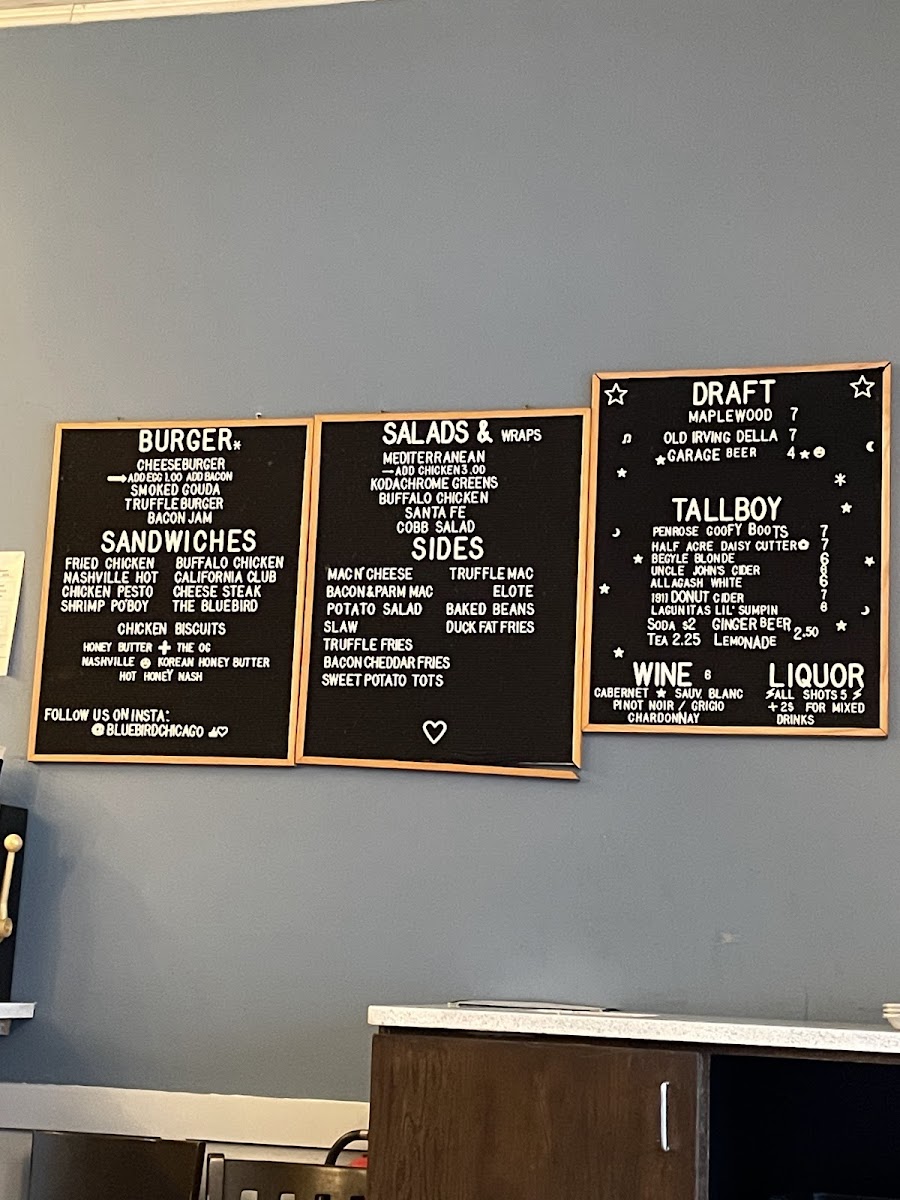 BURGER*
CHEESEBURGER
ADD EGG 1.00 ADD BACON
SMOKED GOUDA
TRUFFLE BURGER
BACON JAM
SANDWICHES
FRIED CHICKEN BUFFALO CHICKEN
NASHVILLE HOT CALIFORNIA CLUB
CHICKEN PESTO CHEESE STEAK
SHRIMP PO'BOY THE BLUEBIRD
CHICKEN BISCUITS
HONEY BUTTER + THE OG
NASHVILLE KOREAN HONEY BUTTER
HOT HONEY NASH
FOLLOW US ON INSTA:
@BLUEBIRDCHICAGO
SALADS & WRAPS
MEDITERRANEAN
—ADD CHICKEN 3.00
KODACHROME GREENS
BUFFALO CHICKEN
SANTA FE
COBB SALAD
SIDES
MAC N' CHEESE TRUFFLE MAC
BACON & PARM MAC ELOTE
POTATO SALAD BAKED BEANS
SLAW DUCK FAT FRIES
TRUFFLE FRIES
BACON CHEDDAR FRIES
SWEET POTATO TOTS
DRAFT
MAPLEWOOD 7
OLD IRVING DELLA 7
GARAGE BEER 4
TALLBOY
PENROSE GOOFY BOOTS 7
HALF ACRE DAISY CUTTER 7
BEGYLE BLONDE 6
UNCLE JOHN'S CIDER
ALLAGASH WHITE 6
1911 DONUT CIDER 7
LAGUNITAS LIL' SUMPIN
SODA $2 GINGER BEER
TEA 2.25 LEMONADE 2.50
WINE
CABERNET ★ SAUV. BLANC
PINOT NOIR / GRIGIO
CHARDONNAY
LIQUOR
ALL SHOTS 5
+2$ FOR MIXED
DRINKS